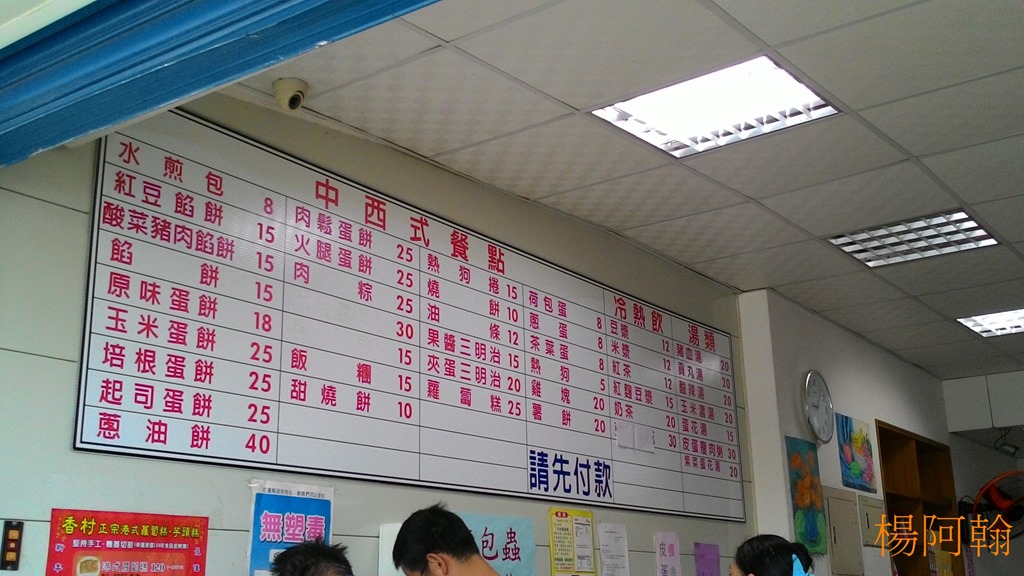 中西式餐點
水煎包 8
紅豆餡餅 15
酸菜豬肉餡餅 15
餡餅 15
原味蛋餅 18
玉米蛋餅 25
培根蛋餅 25
起司蛋餅 25
蔥油餅 40
肉鬆蛋餅 25
火腿蛋餅 25
肉粽 25
30
15
飯糰 15
甜燒餅 10
熱狗捲 15
燒餅 10
油條 12
果醬三明治 15
夾蛋三明治 20
蘿蔔糕 25
荷包蛋 8
蔥蛋 8
茶葉蛋 8
熱狗 5
雞塊 20
薯餅 20
冷熱飲
豆漿 12
米漿 12
紅茶 12
紅麴豆漿 15
奶茶 20
30
湯類
豬血湯 20
貢丸湯 20
酸辣湯 20
玉米濃湯 20
蛋花湯 15
皮蛋瘦肉粥 30
紫菜蛋花湯 20
請先付款
香村 正宗港式蘿蔔糕·芋頭糕
堅持手工·機器切割
無塑毒
包蟲
楊阿翰